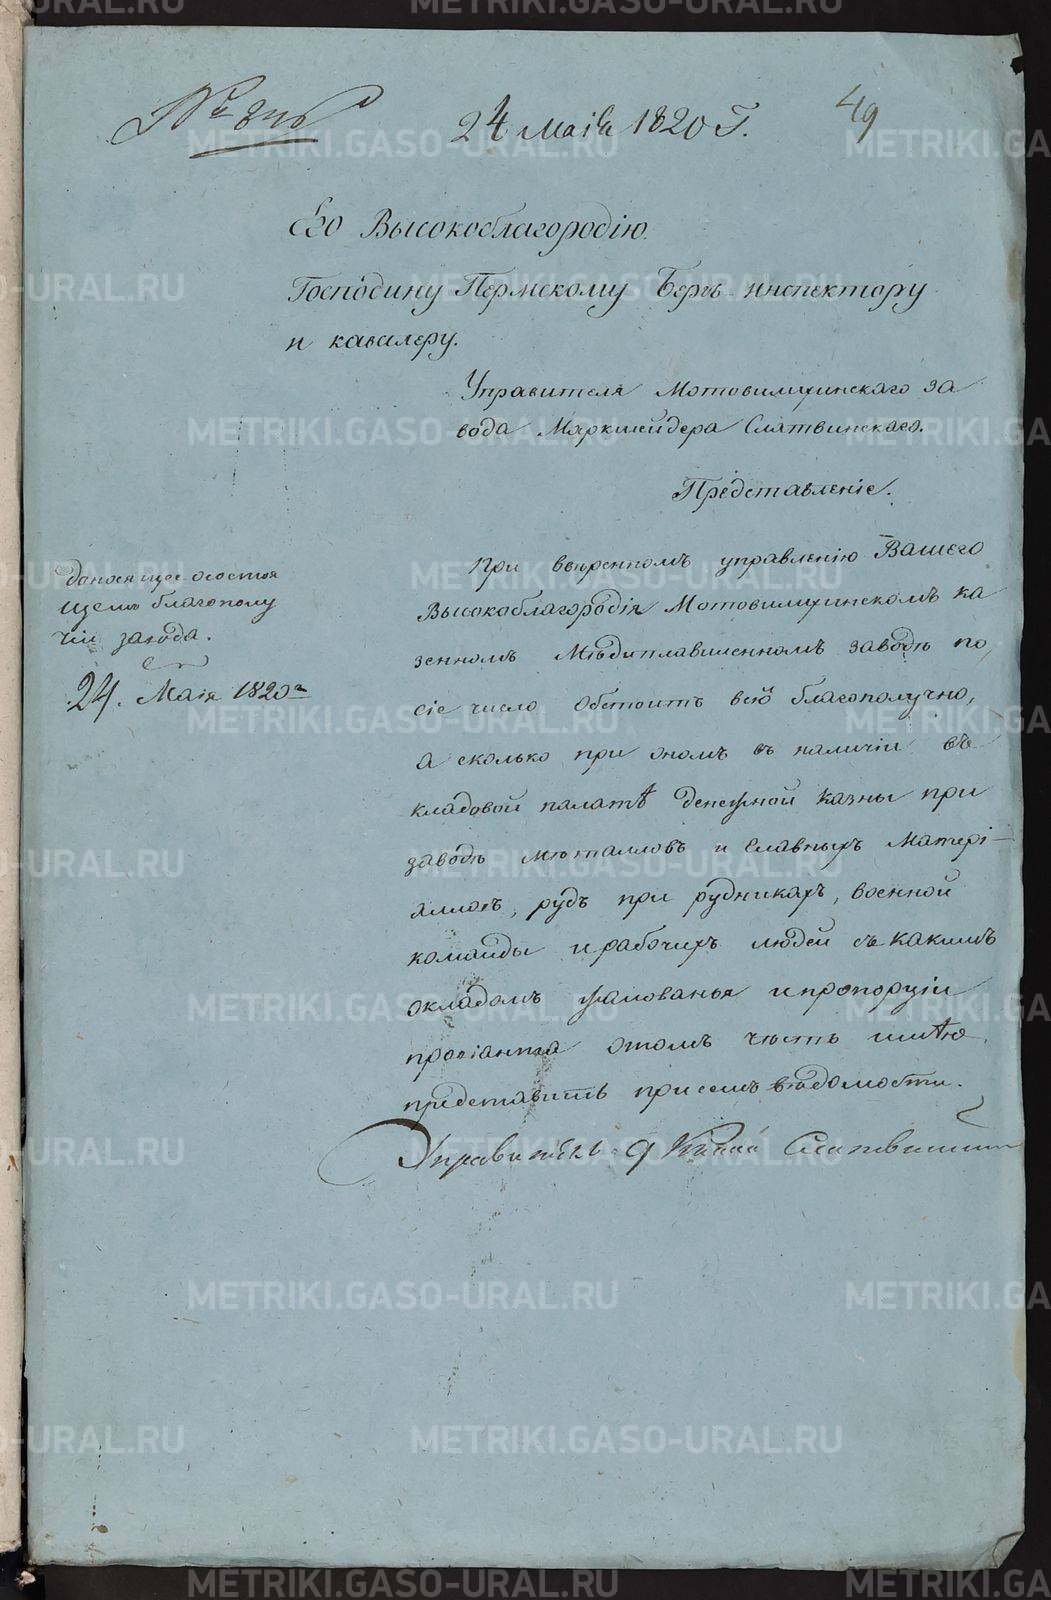 24 Маія 1820 Г.
49
Его Высокоблагородію.
Господину Пермскому Бергъ-инспектору
и кавалеру.
Управителя Мотовилихинскаго за
вода Маркшейдера Слатвинскаго.
Представленіе.
доносящее о состоя
щемъ благополу
чіи завода.
24. Маія 1820го
При ввѣренномъ управленію Вашего
Высокоблагородія Мотовилихинскомъ ка
зенномъ Мѣдиплавиленномъ заводѣ по
сіе число обстоитъ всіо благополучно,
а сколько при ономъ въ наличіи въ
кладовой палатѣ денежной казны при
заводѣ металловъ и главныхъ Матері-
яловъ, рудъ при рудникахъ, военной
команды и рабочихъ людей съ какимъ
окладомъ жалованья и пропорціи
провіанта о томъ честь имѣю
представить при семъ вѣдомости.
Управитель Слатвинскій
METRIKI.GASO-URAL.RU